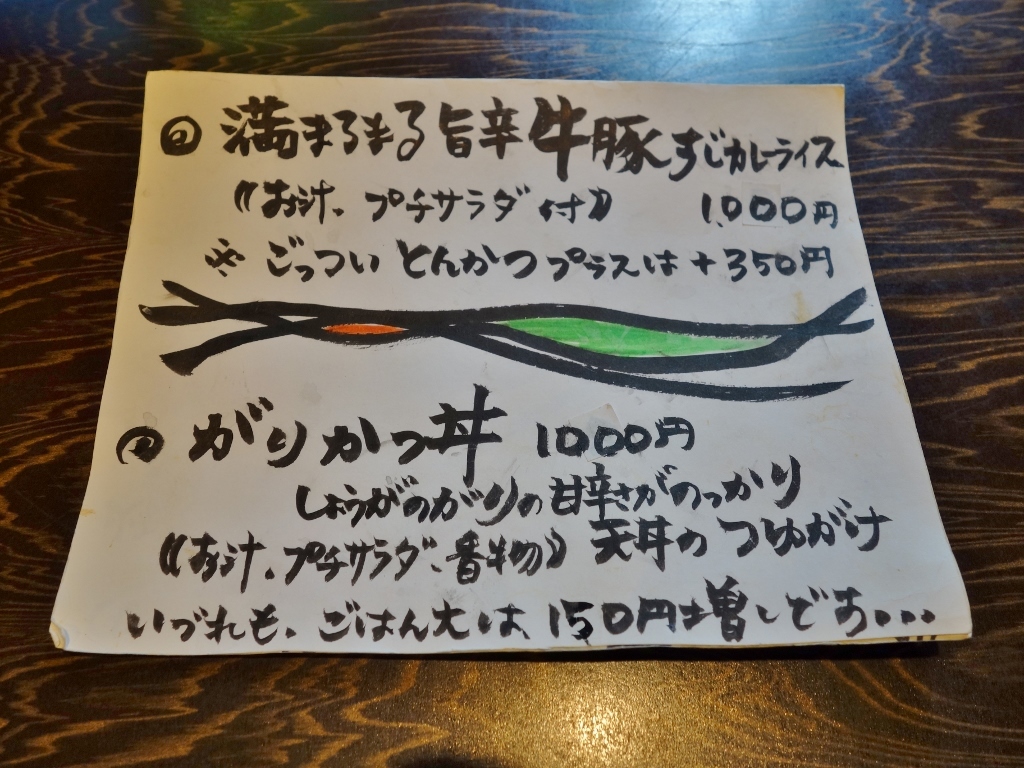 満まるまる旨辛牛豚すじカレーライス
《お汁、プチサラダ付》 1,000円
※ ごっつい とんかつ プラスは +350円
がりかつ丼 1000円
しょうがのがりの甘辛さがのっかり
《お汁、プチサラダ、香物》 天丼の つゆがけ
いづれも、ごはん大は、150円増しです...